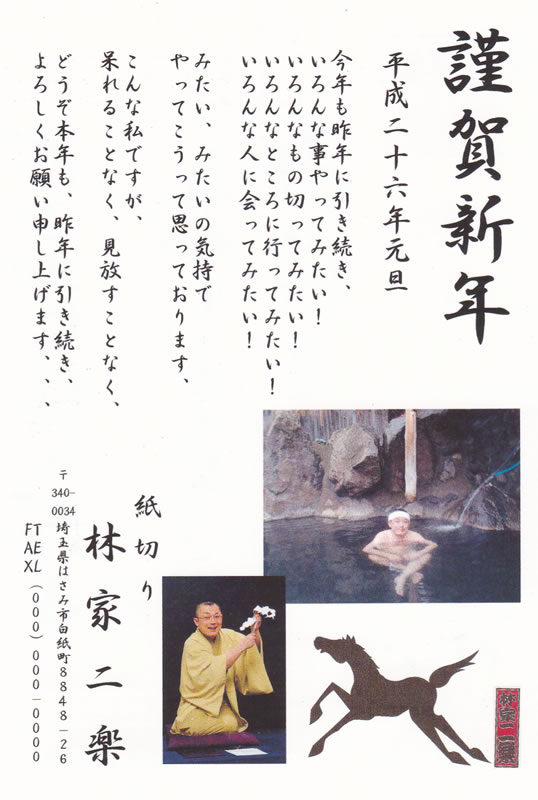 謹賀新年
平成二十六年元旦
今年も昨年に引き続き、
いろんな事やってみたい！
いろんなもの切ってみたい！
いろんなところに行ってみたい！
いろんな人に会ってみたい！
みたい、みたいの気持で
やってこうって思っております、
こんな私ですが、
呆れることなく、見放すことなく、
どうぞ本年も、昨年に引き続き、
よろしくお願い申し上げます、、、
紙切り
林家二楽
〒340-0034 埼玉県はさみ市白紙町8848-26
TEL
FAX (000)000-0000
林家二楽